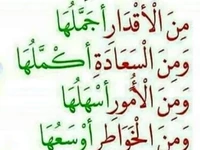 مِنَ الْأَقْدَارِ أَجْمَلُهَا
وَمِنَ السَّعَادَةِ أَكْمَلُهَا
وَمِنَ الْأُمُورِ أَسْهَلُهَا
وَمِنَ الْخَوَاطِرِ أَوْسَعُهَا